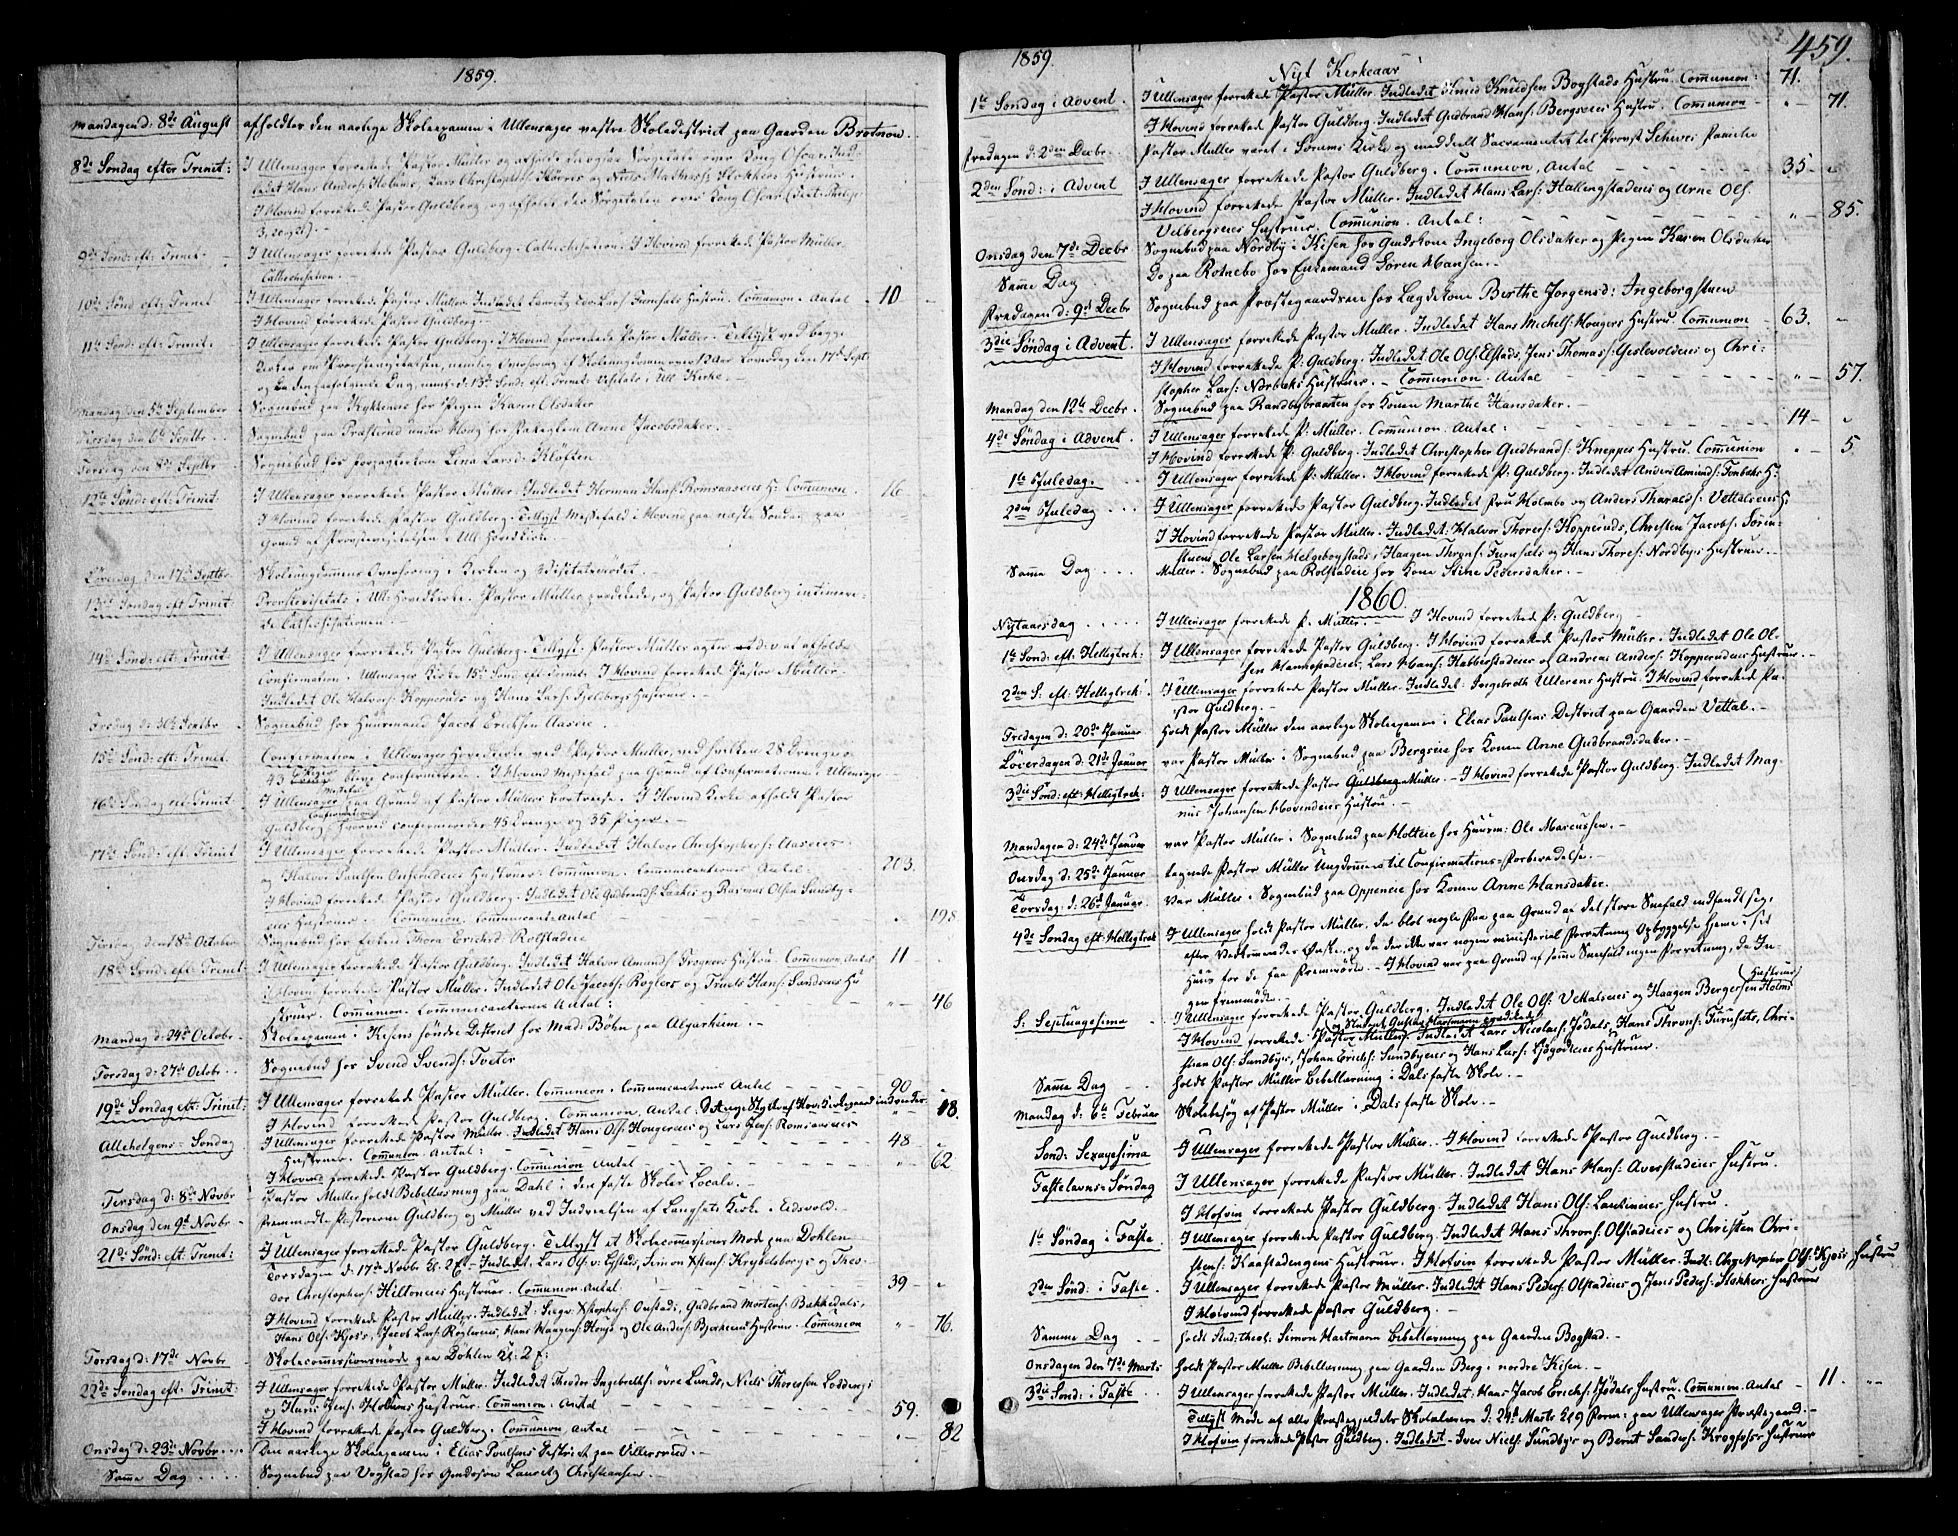 1859.
Mandagen d: 8de August afholdtes den aarlige Skoleexamen i Ullensager vestre Skoledistrict paa Gaarden Brotnow.
8de Søndag efter Trinit: I Ullensager forrettede Pastor Müller og afholdt deropaa Sørgetale over Kong Oscar. Ind-
ledet Hans Anders: Holums, Lars Christophers: og Niels Mathias: Hustruer.
I Hovind forrettede Pastor Guldberg og afholdt der Sørgetalen over Kong Oscar (Text: Philip:
3, 20 og 21). -
9de Sønd: eft: Trinit. I Ullensager forrettede Pastor Guldberg. Cathechisation. I Hovind forrettede Pastor Müller.
Cathechisation. -
10de Sønd eft: Trinit I Ullensager forrettede Pastor Müller. Indledet Lauritz Furusets Hustru. Communion. Antal 10 -
I Hovind forrettede Pastor Guldberg. -
11te Sønd: eft: Trinit. I Ullensager forrettede Pastor Guldberg. I Hovind forrettede Pastor Müller. Tillyst ved begge
Kirker om Provstevisitatsen, nemlig Overhøring af Skoleungdommen Løverdag den 17de Sept.
og den paafølgende Dag, 13de Sønd: eft: Trinit: Visitats i Ull: Kirke.
Mandag den 5te September Sognebud paa hos Pigen Karen Olsdatter
Tirsdag den 6te Septbr. Sognebud paa under Houg hos Anne Jacobsdatter.
Torsdag den 8de Septbr Sognebud hos Lina Larsd: Kløften
12te Sønd: eft: Trinit. I Ullensager forrettede Pastor Müller. Indledet Herman Hans: Romsaaseies H: Communion. 16
I Hovind forrettede Pastor Guldberg. Tillyst Messefald i Hovind paa næste Søndag paa
Grund af Provstevisitatsen i Ull: Hovedkirke. -
Løverdag den 17de Septbr Skoleungdommens Overhøring i Kirken og Visitatsmødet. -
13de Søndag eft Trinit Provstevisitats i Ull: Hovedkirke. Pastor Müller prædikede, og Pastor Guldberg intimere-
de Cathechisationen. -
14de Sønd: eft: Trinit I Ullensager forrettede Pastor Guldberg. Tillyst Pastor Müller agter at afholde
Confirmation i Ullensager Kirke 15de Sønd. eft Trinit: I Hovind forrettede Pastor Müller.
Indledet Ole Halvors: Kopperuds og Hans Lars: Fjelbergs Hustruer. -
Fredag d: 30te Septbr Sognebud hos Huusmand Jacob Ericksen Aaseie. -
15de Sønd: eft: Trinit. Confirmation i Ullensager Hovedkirke ved Pastor Müller, ved hvilken 28 Drenge og
43 Piger bleve confirmerede. I Hovind Messefald paa Grund af Confirmationen i Ullensager
16de Søndag eft Trinit I Ullensager Messefald paa Grund af Pastor Müllers Bortreise. I Hovind Kirke afholdt Pastor
Guldberg Confirmation, hvorved confirmeredes 45 Drenge og 35 Piger. -
17de Sønd: eft: Trinit I Ullensager forrettede Pastor Müller. Indledet Halvor Christophers: Aaseies
og Halvor Paulsen Hustruer. Communion. Communicanternes Antal - 203.
I Hovind forrettede Pastor Guldberg. Indledet Ole Gudbrands: og Rasmus Olsen Sundby-
eies Hustruer. - Communion. Communicantantal - - - 198
Tirsdag den 18de October Sognebud hos Enken Thora Erichsd: Rolstadeie
18de Sønd: eft: Trinit: I Ullensager forrettede Pastor Guldberg. Indledet Halvor Amunds: Frogners Hustru. Communion, Antal 11 -
I Hovind forrettede Pastor Müller. Indledet Ole Jacobs: Røglers og Truels Hans: Sandsnes Hu
struer. Communion. Communicanternes Antal: - " - 46
Mandag d: 24de Octobr. Skoleexamen i Kisens søndre District hos Mad: Böhn paa Algarheim. -
Torsdag d: 27de Octobr. Sognebud hos Svend Svends: Tveter
19de Søndag eft: Trinit: I Ullensager forrettede Pastor Müller. Communion. Communicanternes Antal - - - 90 -
I Hovind forrettede Pastor Guldberg. Communion. Antal " - 18.
Allehelgens-Søndag I Ullensager forrettede Pastor Müller. Indledet Hans Ols: Hougereies og Lars Jens: Romsaaseies
Hustruer. Communion. Antal: - - - 48 -
I Hovind forrettede Pastor Guldberg. Communion. Antal - - - " - 62
Tirsdag d: 8de Novbr Pastor Müller holdt Bibellæsning paa Dahl i den faste Skoles Locale. -
Onsdag den 9de Novbr. Fremmødte Pastorerne Guldberg og Müller ved Indvielsen af Langsets Kirke i Eidsvold.
21de Sønd: eft. Trinit: I Ullensager forrettede Pastor Guldberg. Tillyst et Skolecommissions Møde paa Dohlen
Torsdagen d. 17de Novbr. Kl. 2 Ef. - Indledet: Lars Ols: v: Elstads, Simon Krybelsborgs og Theo-
dor Christophers: Hiltoneies Hustruer. Communion. Antal - - - 39 - "
I Hovind forrettede Pastor Müller. Indledet: Onstads, Gudbrand Mortens: Bakkedals,
Hans Ols: Kjos's, Jacob Lars: Røglereies, Hans Haagens: Hougs og Ole Anders: Bjerkeeies Hustruer. Communion " - 76.
Torsdag d: 17de Novbr Skolecommissionsmøde paa Dohlen Kl: 2 E:
22de Søndag eft: Trinit: I Ullensager forrettede Pastor Müller. Indledet Theodor Ingebrethts: øvre Lunds, Niels Thoresen
og Hans Jens: Holums Hustruer. Communion. Antal - - - 59. -
I Hovind forrettede Pastor Guldberg. Communion. Antal - - - " - 82
Onsdag d: 23de Novbr. Den aarlige Skoleexamen i Elias Poulsens District paa Villersrud. -
Samme Dag . . . . Sognebud paa Vogstad hos Lauritz Christiansen. -
459.
1859.
Nyt Kirkeaar
1te Søndag i Advent. I Ullensager forrettede Pastor Müller. Indledet Knud Knudsen Bogstads Hustru. Communion: 71.
I Hovind forrettede Pastor Guldberg. Indledet Gudbrand Hans: Bergseies Hustru. Communion - " - 71.
Fredagen d: 2den Decbr. Pastor Müller været i Sørums Kirke og meddeelt Sacramentet til Provst Schives Familie
2den Sønd: i Advent I Ullensager forrettede Pastor Guldberg. Communion, Antal - - - 35 - "
I Hovind forrettede Pastor Müller. Indledet Hans Lars: Hallengstadeies og Arne Ols:
Velbergseies Hustruer. Communion. Antal: - - - " - 85.
Onsdag den 7de Decbr Sognebud paa Nordby i Kisen hos Ingeborg Olsdatter og Pigen Karen Olsdatter
Samme Dag . Do paa Rotnebo hos Enkemand Søren Hansen. -
Fredagen d: 9de Decbr Sognebud paa Præstegaardseie hos Lægdekone Berthe Jørgensd: Ingeborgstuen
3die Søndag i Advent. I Ullensager forrettede Pastor Müller. Indledet Hans Michels: Hougers Hustru. Communion - 63. -
I Hovind forrettede P: Guldberg. Indledet: Ole Ols: Elstads, Jens Thomas: Gislevoldeies og Chri-
stopher Lars: Nordbeks Hustruer. - Communion. Antal - - - " - 57.
Mandag den 12te Decbr. Sognebud paa Randbybraaten hos Konen Marthe Hansdatter. -
4de Søndag i Advent. I Ullensager forrettede P: Müller. Communion. Antal: - - - 14 - "
I Hovind forrettede P: Guldberg. Indledet Christopher Gudbrands: Kneppes Hustru. Communion " - 5
1te Juledag. . . . I Ullensager forrettede P: Müller. I Hovind forrettede P: Guldberg. Indledet Anders Amunds: Tonbeks H:
2den Juledag . . . I Ullensager forrettede Pastor Guldberg. Indledet Fru Holmbo og Anders Tharalds: Vettalseies H:
I Hovind forrettede Pastor Müller. Indledet: Halvor Thores: Kopperuds, Christen Jacobs: Sørin-
stuens, Ole Larsen Helgebostads, Haagen Throns: Furusets og Hans Thores: Nordbyes Hustruer. -
Samme Dag . . . Müller i Sognebud paa Rolstadeie hos Kone Stine Pedersdatter. -
1860.
Nytaarsdag . . . . . I Ullensager forrettede P. Müller. I Hovind forrettede P: Guldberg -
1te Sønd: eft: Helligtrek: I Ullensager forrettede Pastor Guldberg. I Hovind forrettede Pastor Müller. Indledet Ole Ol-
sen Hannestadeies, Lars Hans: Habberstadeies og Andreas Anders: Kopperudeies Hustruer. -
2den S. eft. Helligtrek: I Ullensager forrettede Pastor Müller. Indledet: Ingebreth Ullerens Hustru. I Hovind forrettede Pa-
stor Guldberg. -
Fredagen d: 20de Januar Holdt Pastor Müller den aarlige Skoleexamen i Elias Paulsens District paa Gaarden Vettal. -
Løverdagen d: 21de Januar var Pastor Müller i Sognebud paa Bergseie hos Konen Anne Gudbrandsdatter. -
3die Sønd: eft: Helligtrek: I Ullensager forrettede Pastor Müller. - I Hovind forrettede Pastor Guldberg. Indledet Mag-
nus Johansen Hovindeies Hustru. -
Mandagen d: 24de Januar var Pastor Müller i Sognebud paa Holteie hos Huusm: Ole Marcussen. -
Onsdag d: 25de Januar tegnede Pastor Müller Ungdommen til Confirmations-Forberedelse. -
Torsdag d: 26de Januar. Var Müller i Sognebud paa Oppeneie hos Konen Anne Hansdatter.
4de Søndag eft: Helligtrek I Ullensager holdt Pastor Müller, da blot nogle Faa paa Grund af det store Sneefald indfandt sig,
efter Vedkommendes Ønske, og da der ikke var nogen ministeriel Forretning Opbyggelse hjemme i sit
Huus for de faa Fremmødte. - I Hovind var paa Grund af samme Sneefald ingen Forretning, da In-
gen fremmødte. -
S. Septuagesima - I Ullensager forrettede Pastor Guldberg. Indledet Ole Ols: Vettalseies og Haagen Bergersen Holms Hustruer
I Hovind forrettede Pastor Müller, og Student Gustav Hartmann prædikede. Indledet Lars Nicolais: Jødals, Hans Throns: Furusets, Chri-
stian Ols: Sundbyes, Johan Erichs: Sundbyeies og Hans Lars: Ljøgodteies Hustruer.
Samme Dag - - holdt Pastor Müller Bibellæsning i Dals faste Skole. -
Mandag d. 6te Februar Skolebesøg af Pastor Müller i Dals faste Skole. -
Sønd: Sexagesima I Ullensager forrettede Pastor Müller. - I Hovind forrettede Pastor Guldberg. -
Fastelavns-Søndag I Ullensager forrettede Pastor Müller. Indledet Hans Hans: Averstadeies Hustru.
I Hofvin forrettede Pastor Guldberg. Indledet Hans Ols: Lauteneies Hustru.
1te Søndag i Faste. I Ullensager forrettede Pastor Guldberg. Indledet Hans Throns: Olstadeies og Christen Chri-
stens: Kaastadengens Hustruer. I Hofvin forrettede Pastor Müller. Indl. Christopher Ols: Kjos's Hustru
2den Sønd: i Faste. I Ullensager forrettede Pastor Müller. Indledet Hans Peders: Olstadeies og Jens Peders: Slokkers Hustruer
I Hovind forrettede Pastor Guldberg. -
Samme Dag - - holdt Stud: theol: Simon Hartmann Bibellæsning paa Gaarden Bogstad. -
Onsdagen den 7de Marts: holdt Pastor Müller Bibellæsning paa Gaarden Berg i nordre Kisen. -
3die Sønd: i Faste . . I Ullensager forrettede Pastor Müller. Indledet. Hans Jacob Erichs: Jødals Hustru. Communion. Antal - 11. - "
Tillyst Møde af alle Præstegjeldets Skolelærere d: 24de Marts Kl 9 Form: paa Ullensager Præstegaard. -
I Hofvin forrettede Pastor Guldberg. Indledet - Iver Niels: Sundbyes og Bernt Sanders: Krogfosses Hustruer